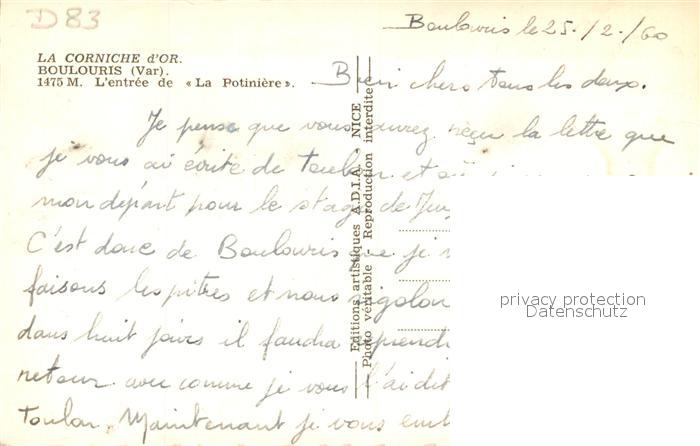 D83
Boulouris le 25./2./60
LA CORNICHE d'OR.
BOULOURIS (Var).
1475 M. L'entrée de « La Potinière ».
Bien chers tous les deux.
Je pense que vous aurez reçu la lettre que
je vous ai écrite de Toulon et où
mon départ pour le stage de
C'est donc de Boulouris que je
faisons les pitres et nous rigolon
dans huit jours il faudra
retour avec comme je vous l'ai dit
Toulon. Maintenant je vous emb
Editions artistiques A.D.I.A. - NICE
Photo véritable - Reproduction interdite
privacy protection
Datenschutz